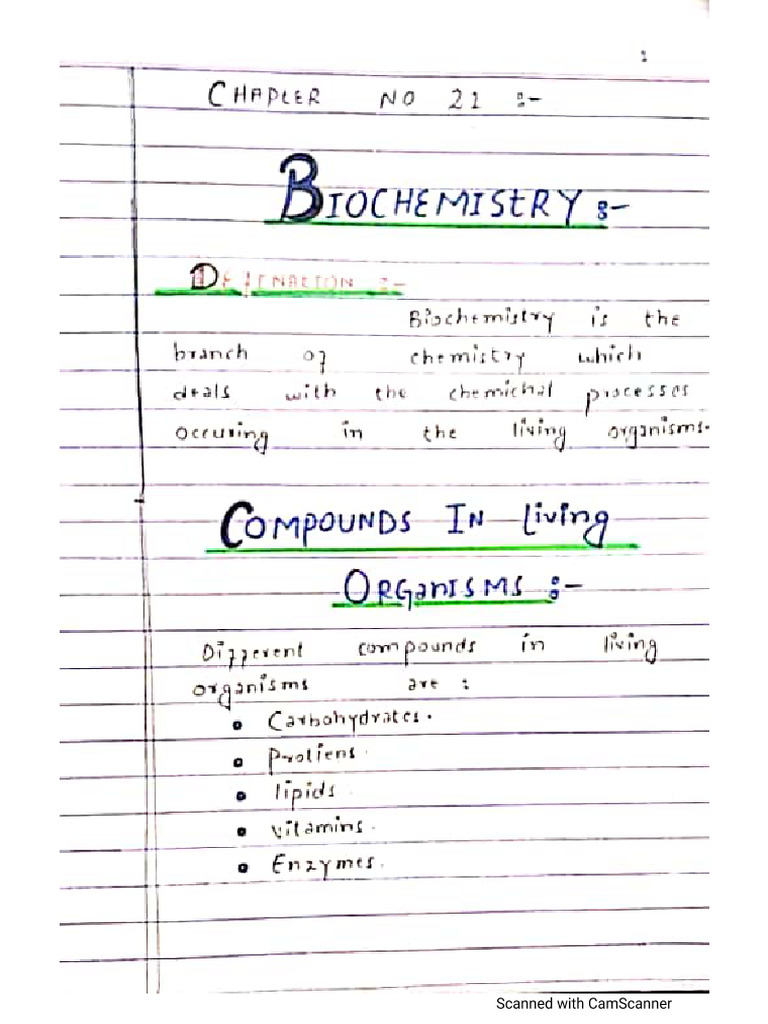 CHAPTER NO 21 :-
BIOCHEMISTRY :-
DEFENATION :-
Biochemistry is the
branch of chemistry which
deals with the chemichal processes
occuring in the living organisms.
COMPOUNDS IN living
ORGanISMS :-
Different compounds in living
organisms are :
• Carbohydrates.
• Protiens.
• lipids.
• vitamins.
• Enzymes.
Scanned with CamScanner